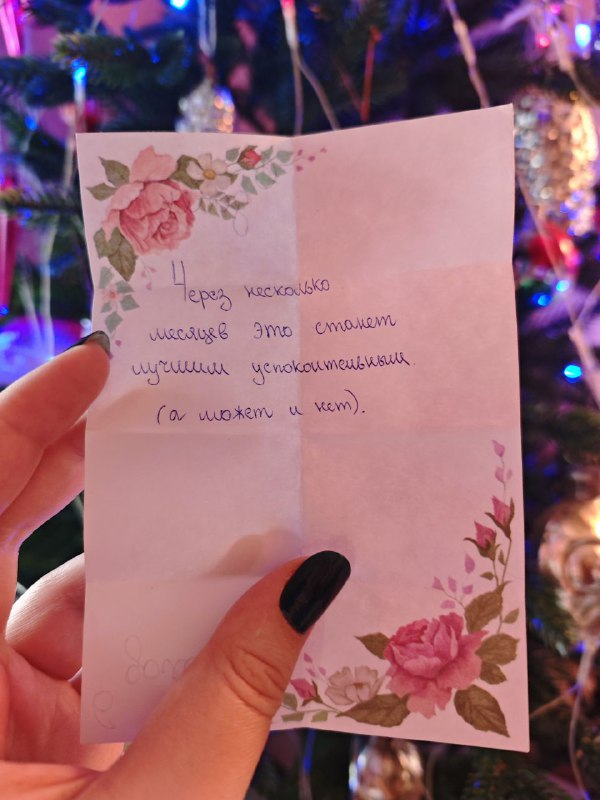 Через несколько
месяцев это станет
лучшим успокоительным.
(а может и нет).